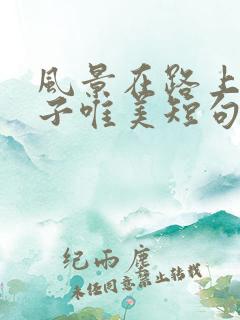 风景在路上
子唯美短句
纪雨尘
未经同意禁止转载